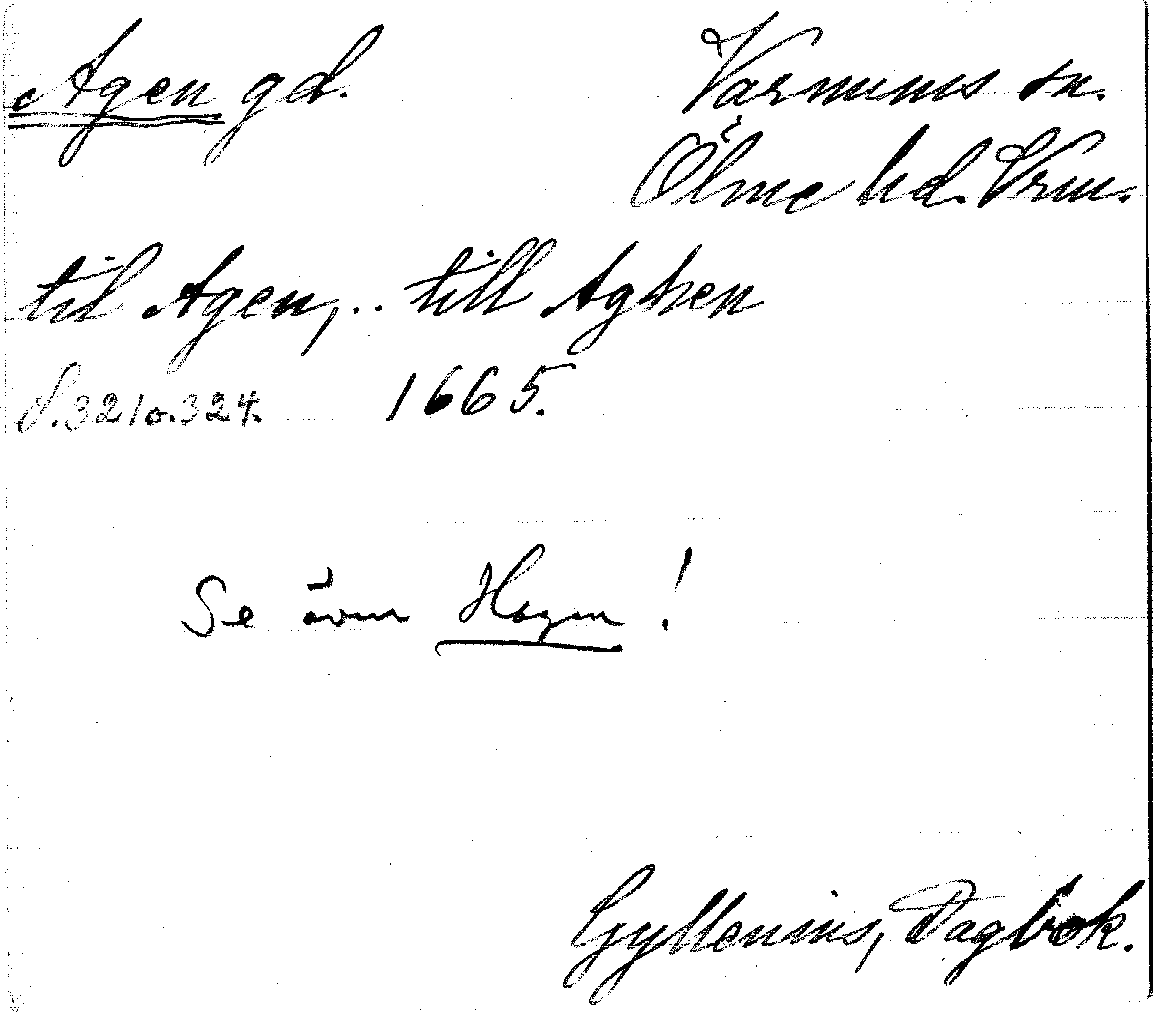 Agen gd.
Varnums sn.
Ölme hd. Vrm.
til Agen,.. till Aghen
S. 321 o. 324. 1665.
Se även Hagen!
Gyllenius, Dagbok.